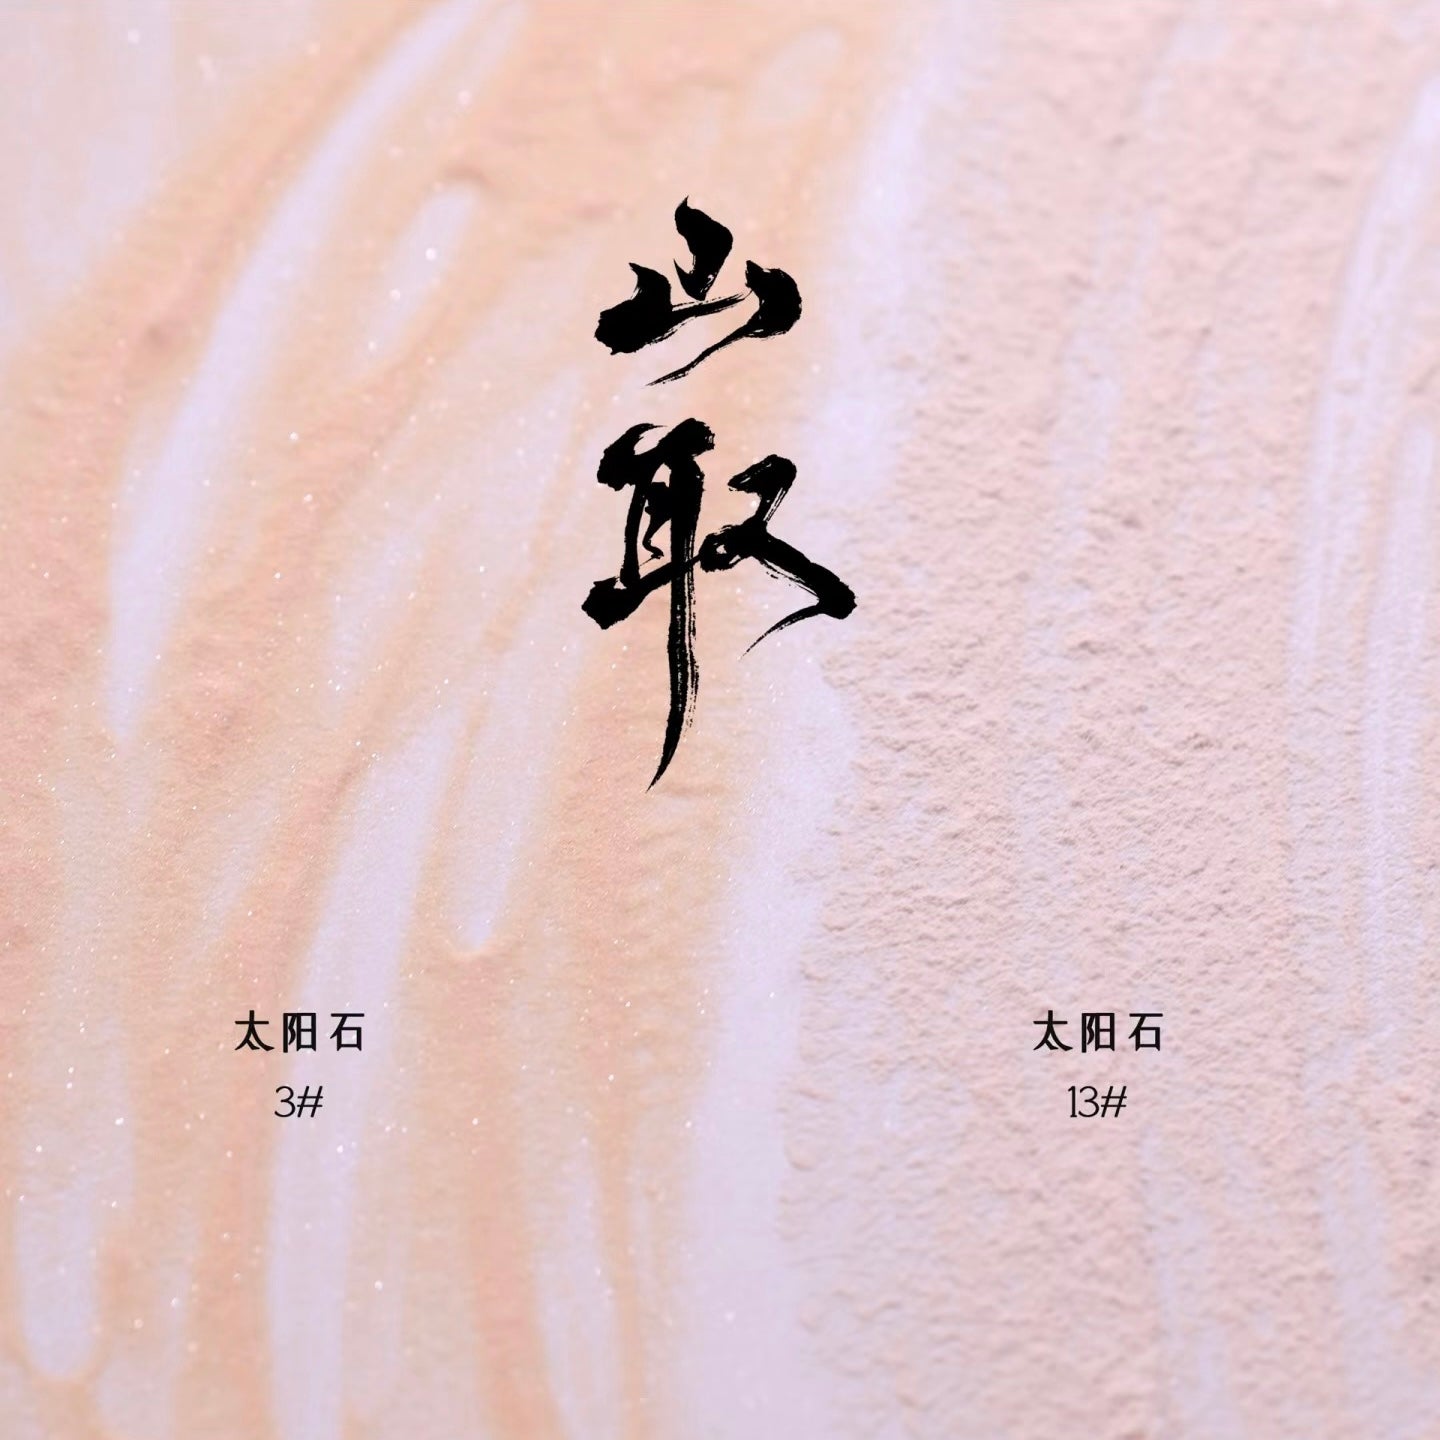 山
取
太阳石
3#
太阳石
13#